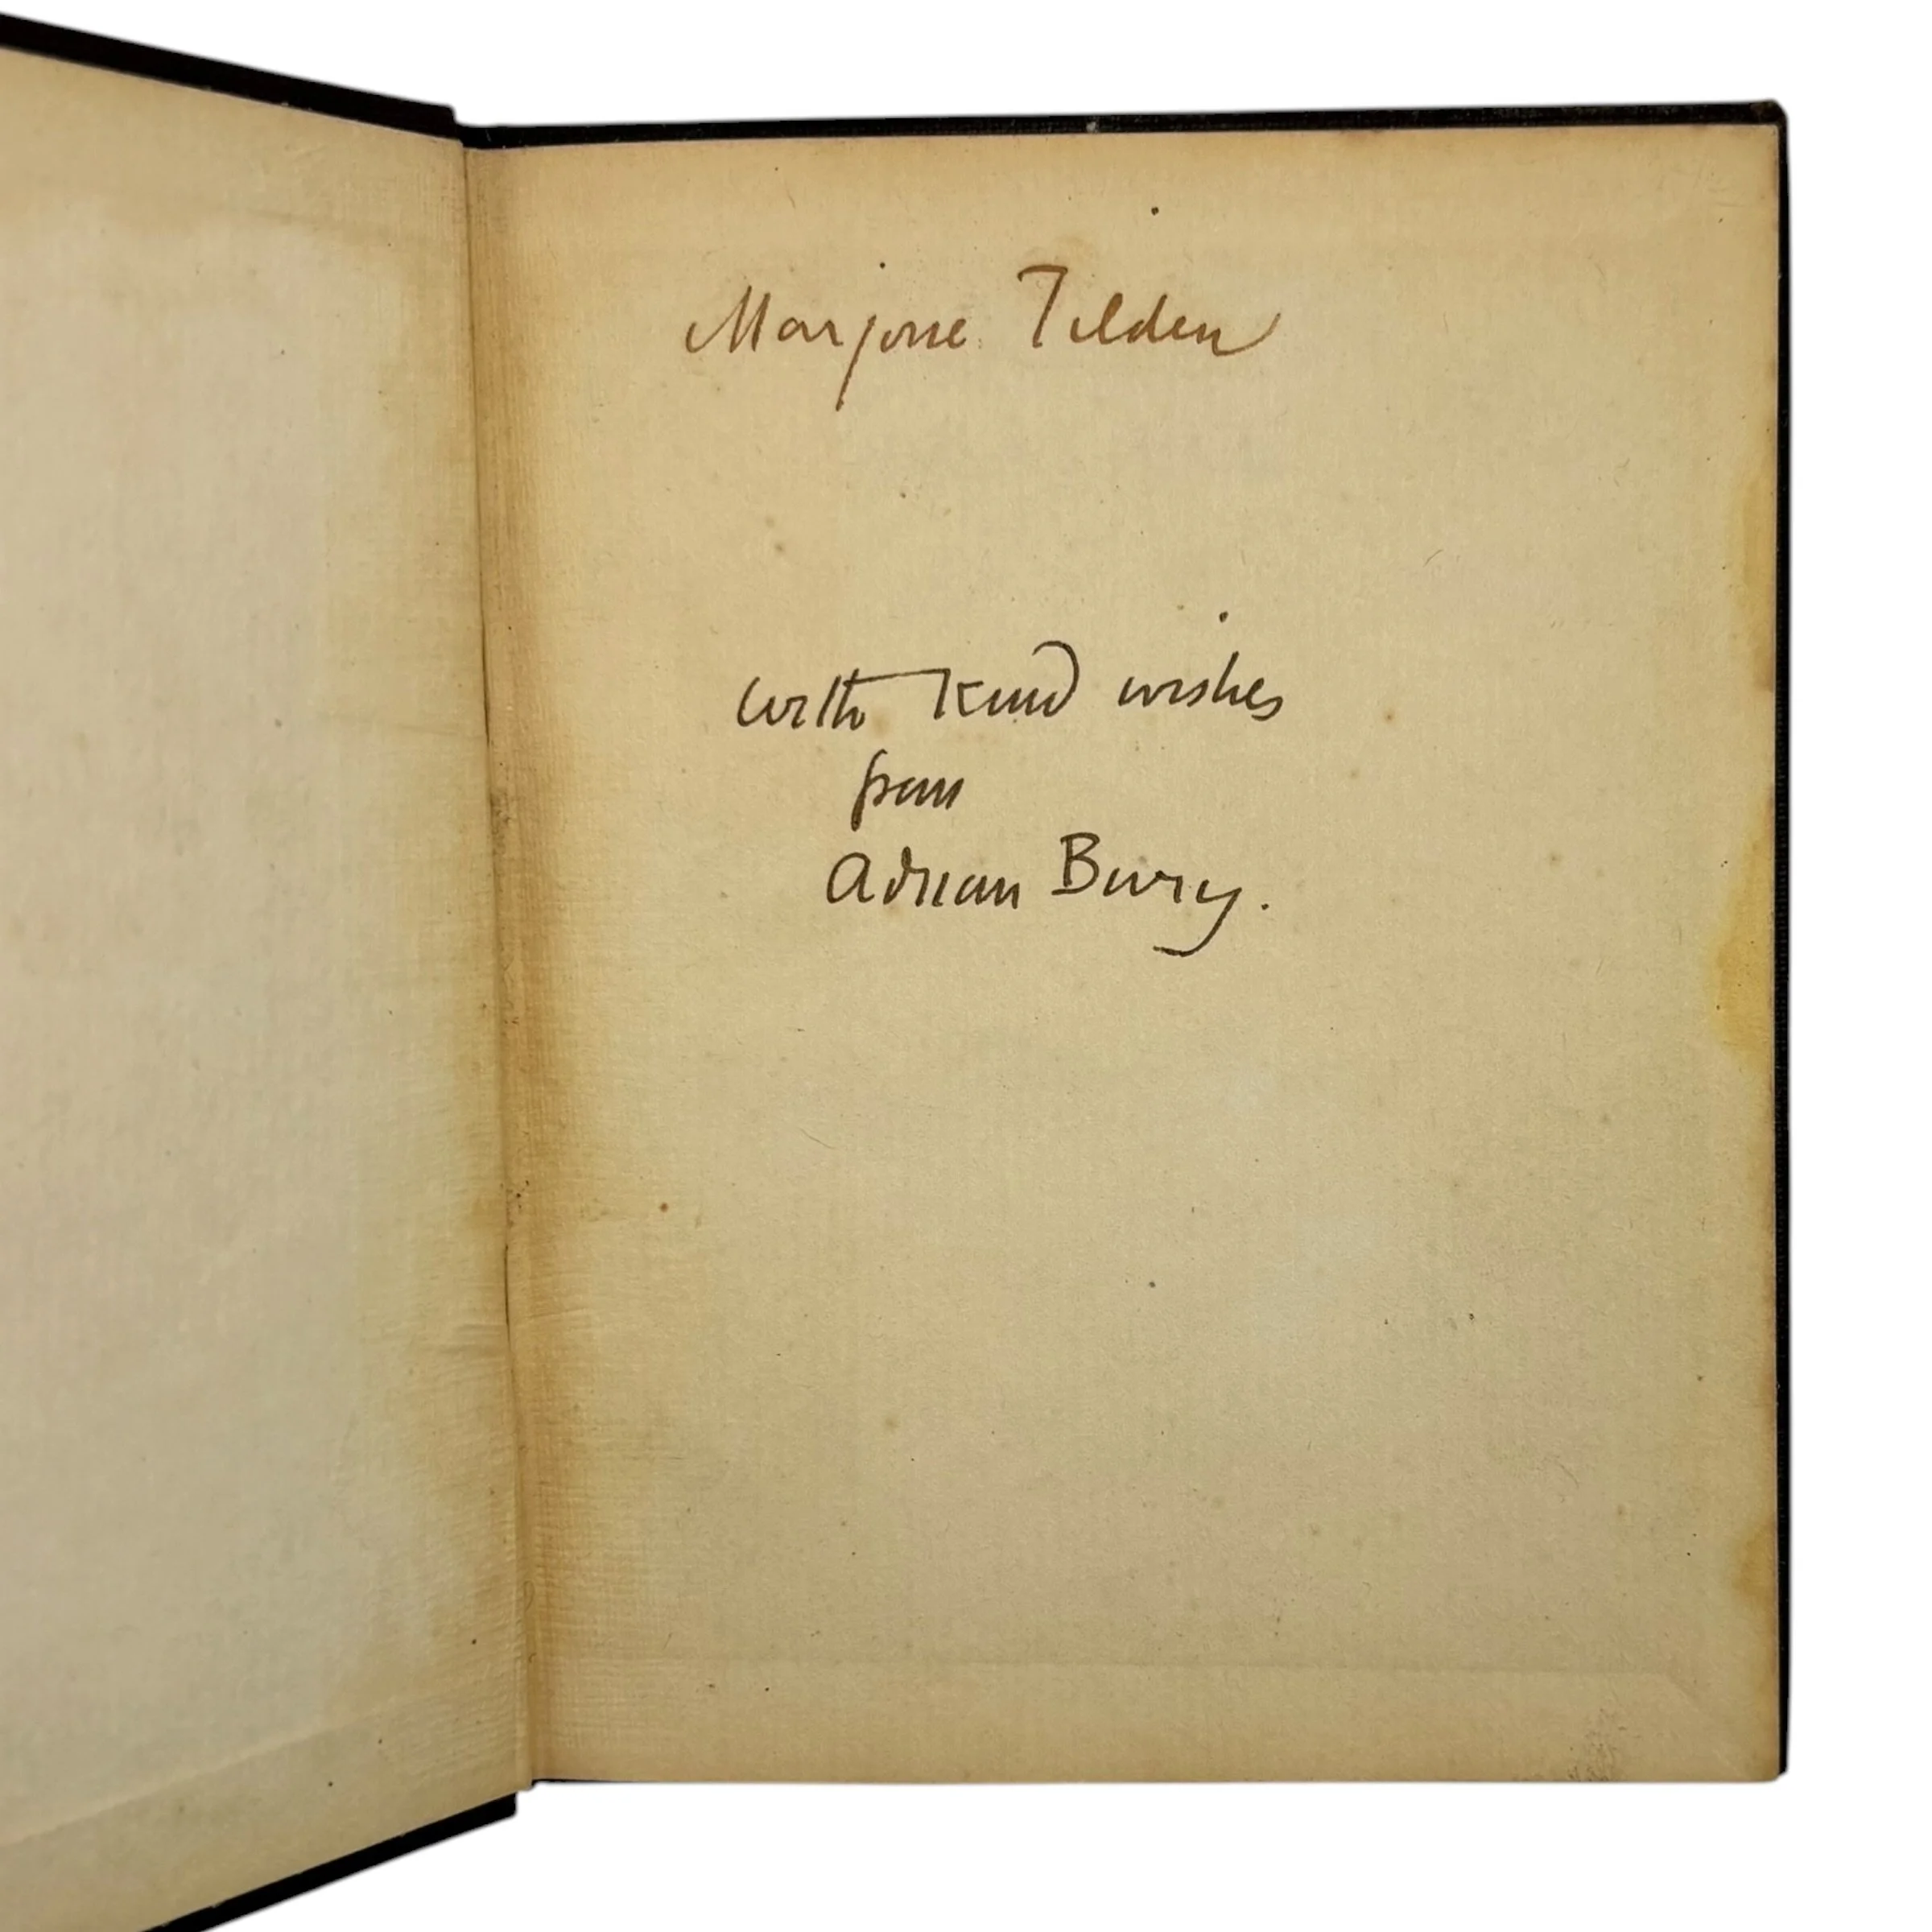 Marjorie Tilden
with kind wishes
from
Adrian Bury.